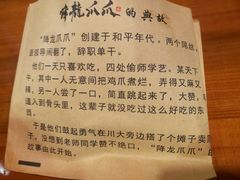 降龍爪爪 的典故
“降龙爪爪”创建于和平年代，两个屌丝，
嫌张导闹翻了，辞职单干。
他们一天只喜欢吃，四处偷师学艺。某天下
午，其中一人无意间把鸡爪煮烂，弄得又麻又
辣，另一人尝了一口，简直跳起来了，大赞，
道入到骨头里，这辈子就没吃过这么好吃的东
西。
于是他们鼓起勇气在川大旁边搭了个摊子卖
，没想到老师同学赞不绝口，“降龙爪爪”
故事由此开始。